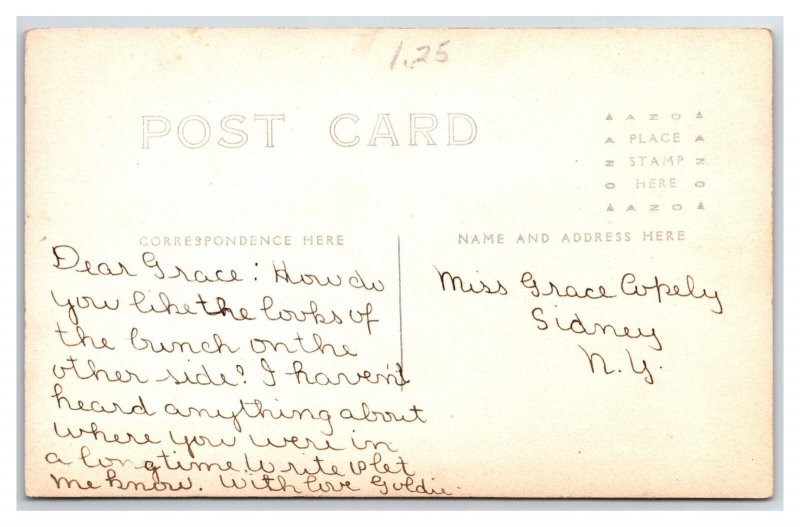 1.25
POST CARD
▲ A Z O ▲
▲ PLACE ▲
Z STAMP Z
O HERE O
▲ A Z O ▲
CORRESPONDENCE HERE
NAME AND ADDRESS HERE
Dear Grace: How do
you like the looks of
the bunch on the
other side? I haven't
heard anything about
where you were in
a long time Write & let
me know. With love Goldie.
Miss Grace Copely
Sidney
N.Y.